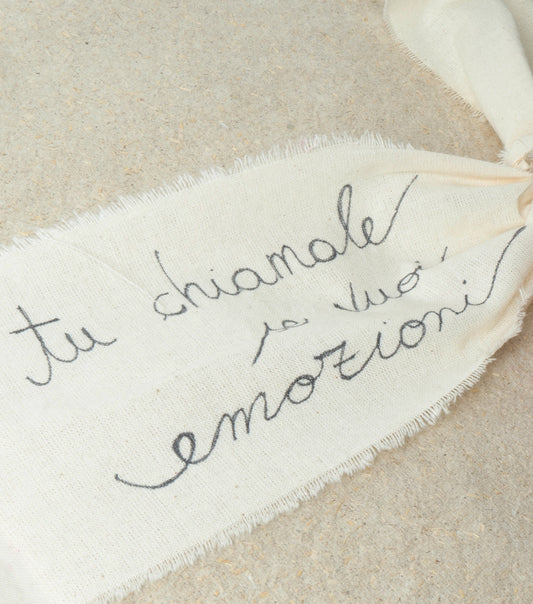 tu chiamale
se vuoi
emozioni